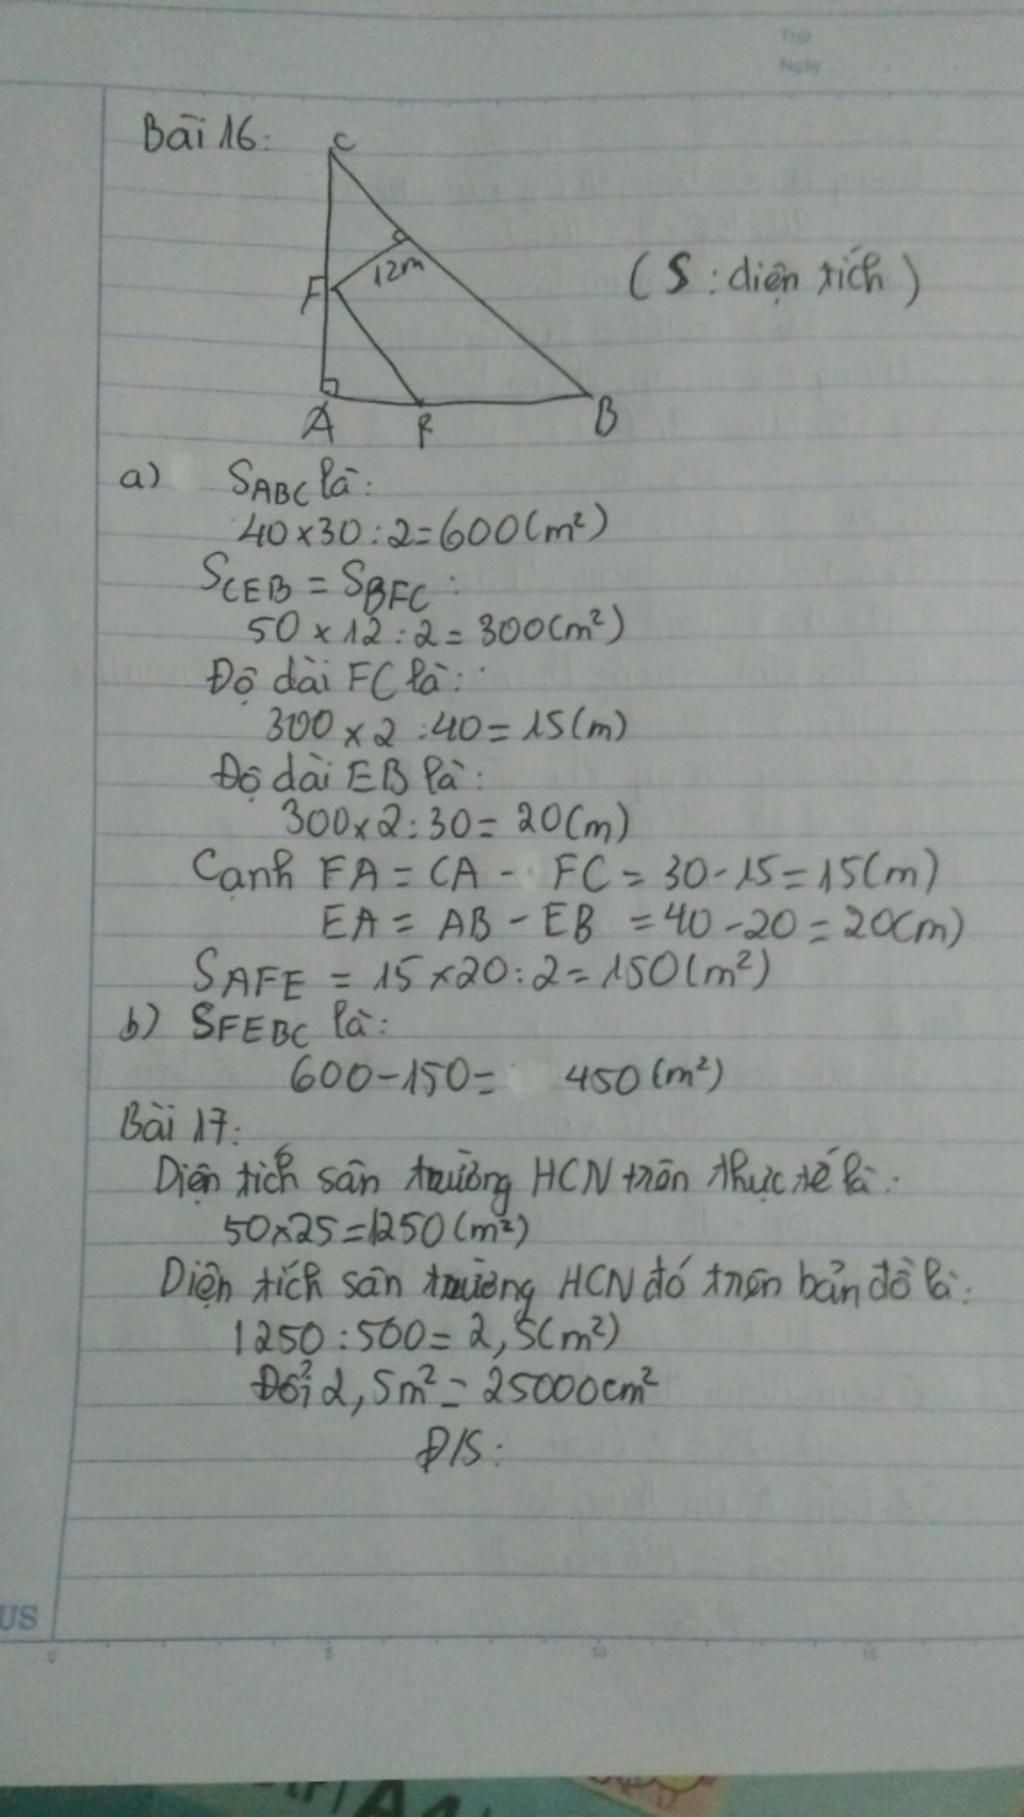 Thứ
Ngày
Bài 16:
C
12m
F
(S : diện tích)
A
F
B
a) SABC là:
40 x 30 : 2 = 600 (m²)
SCEB = SBFC :
50 x 12 : 2 = 300 (m²)
Độ dài FC là:
300 x 2 : 40 = 15 (m)
Độ dài EB là:
300 x 2 : 30 = 20 (m)
Cạnh FA = CA - FC = 30 - 15 = 15 (m)
EA = AB - EB = 40 - 20 = 20 (m)
SAFE = 15 x 20 : 2 = 150 (m²)
b) SFEBC là:
600 - 150 = 450 (m²)
Bài 17:
Diện tích sân trường HCN trên thực tế là:
50 x 25 = 1250 (m²)
Diện tích sân trường HCN đó trên bản đồ là:
1250 : 500 = 2,5 (m²)
Đổi 2,5m² = 25000cm²
Đ/S:
US
0 5 10 15